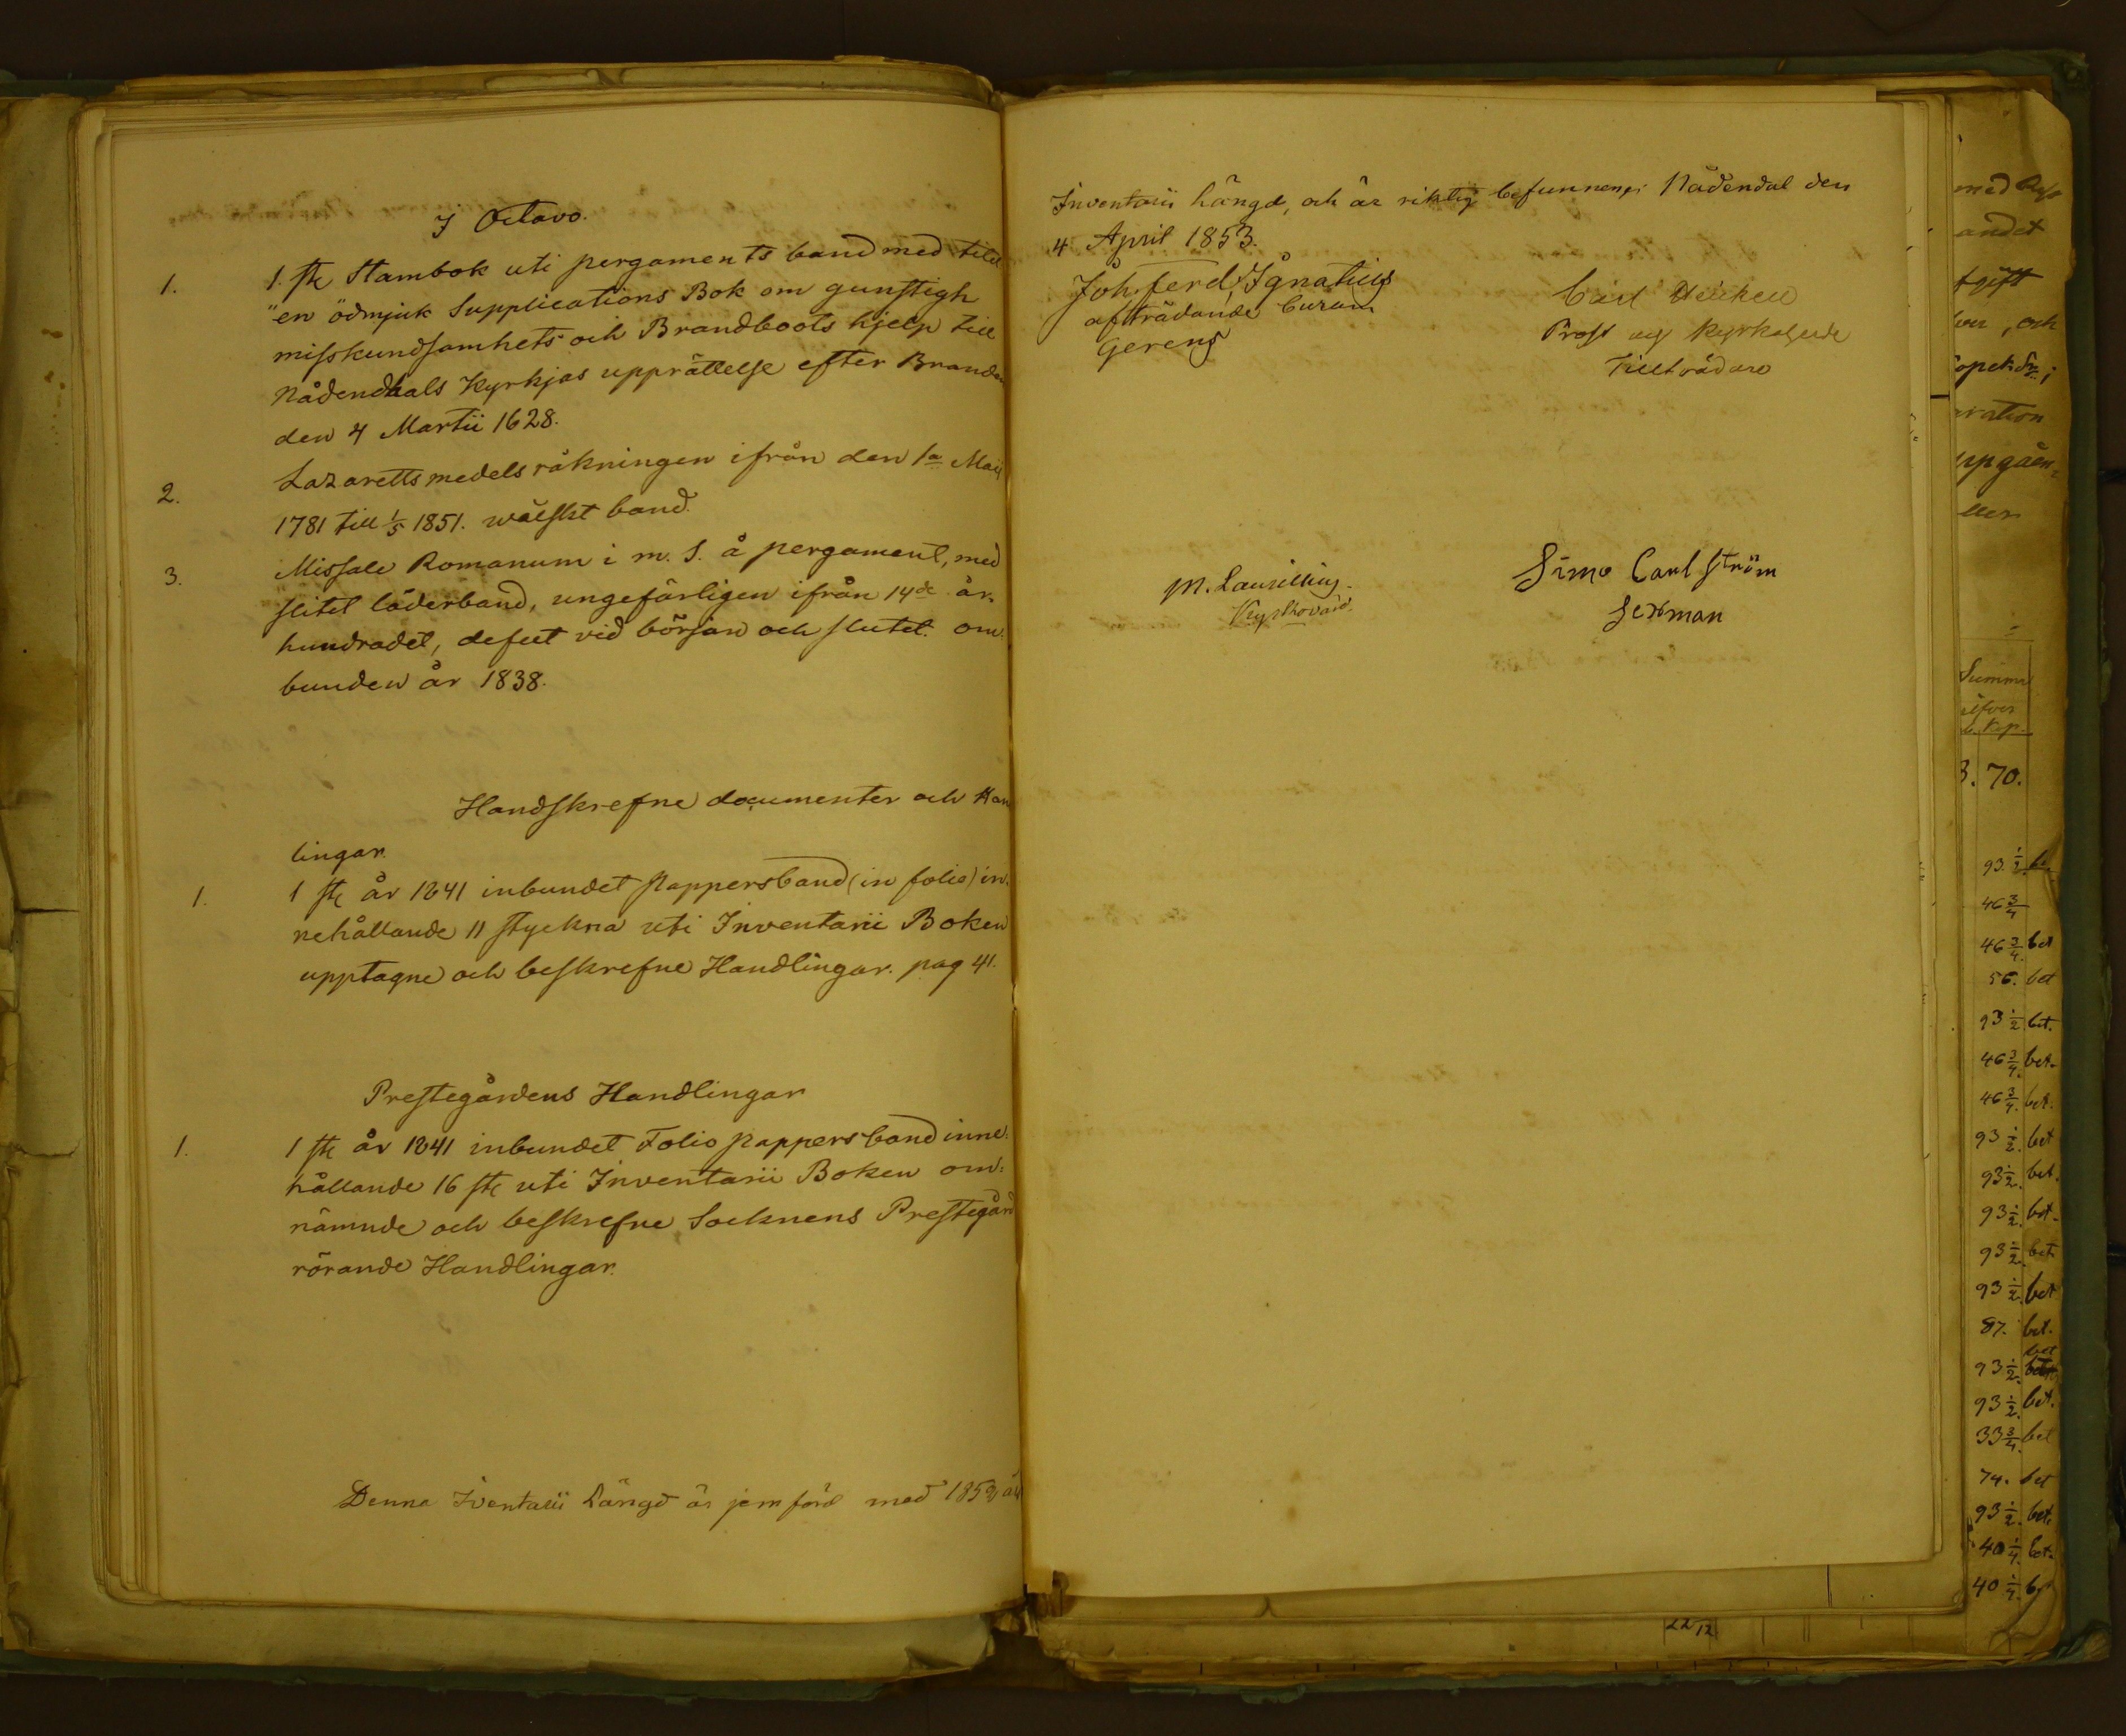 I Octavo.
1. 1. st Stambok uti pergaments band med titel
"en ödmjuk Supplications Bok om gunstigh
misskundsamhets och Brandboots hjelp till
Nådendhals Kyrkjas upprättelse efter Branden
den 4 Martii 1628.
2. Lazaretts medels räkningen ifrån den 1a Maij
1781 till 1/5 1851. wälskt band.
3. Missale Romanum i m. S. å pergament, med
slitet läderband, ungefärligen ifrån 14de år-
hundradet, defect vid början och slutet. om-
bunden år 1838.
Handskrefne documenter och Han
lingar.
1. 1 st år 1841 inbundet pappersband (in folio) in-
nehållande 11 styckna uti Inventarii Boken
upptagne och beskrefne Handlingar. pag 41.
Prestegårdens Handlingar
1. 1 st år 1841 inbundet Folio pappersband inne-
hållande 16 st uti Inventarii Boken om-
nämnde och beskrefne Socknens Prestegård
rörande Handlingar.
Denna Iventarii Längd är jemförd med 1852
Inventarii längd, och är riktig befunnen; Nådendal den
4 April 1853.
Joh. Ferd Ignatius
afträdande Curam
Gerens
Carl
Prost och Kyrkoherde
Tillträdare
M. Laurellius.
Kyrkovärd.
Simo Carlström
Sexman
med
andet
tgift
ver, och
aration
uppgåen-
ller
Summa
silfver
Kp.
3. 70.
93 1/2
46 3/4
46 3/4 bet
56. bet
93 1/2 bet.
46 3/4 bet.
46 3/4 bet.
93 1/2 bet
93 1/2 bet.
93 1/2 bet.
93 1/2 bet
93 1/2 bet
87. bet.
bet
93 1/2
93 1/2 bet.
33 3/4 bet
74. bet
93 1/2 bet.
40 1/4 bet.
40 1/4
22 12